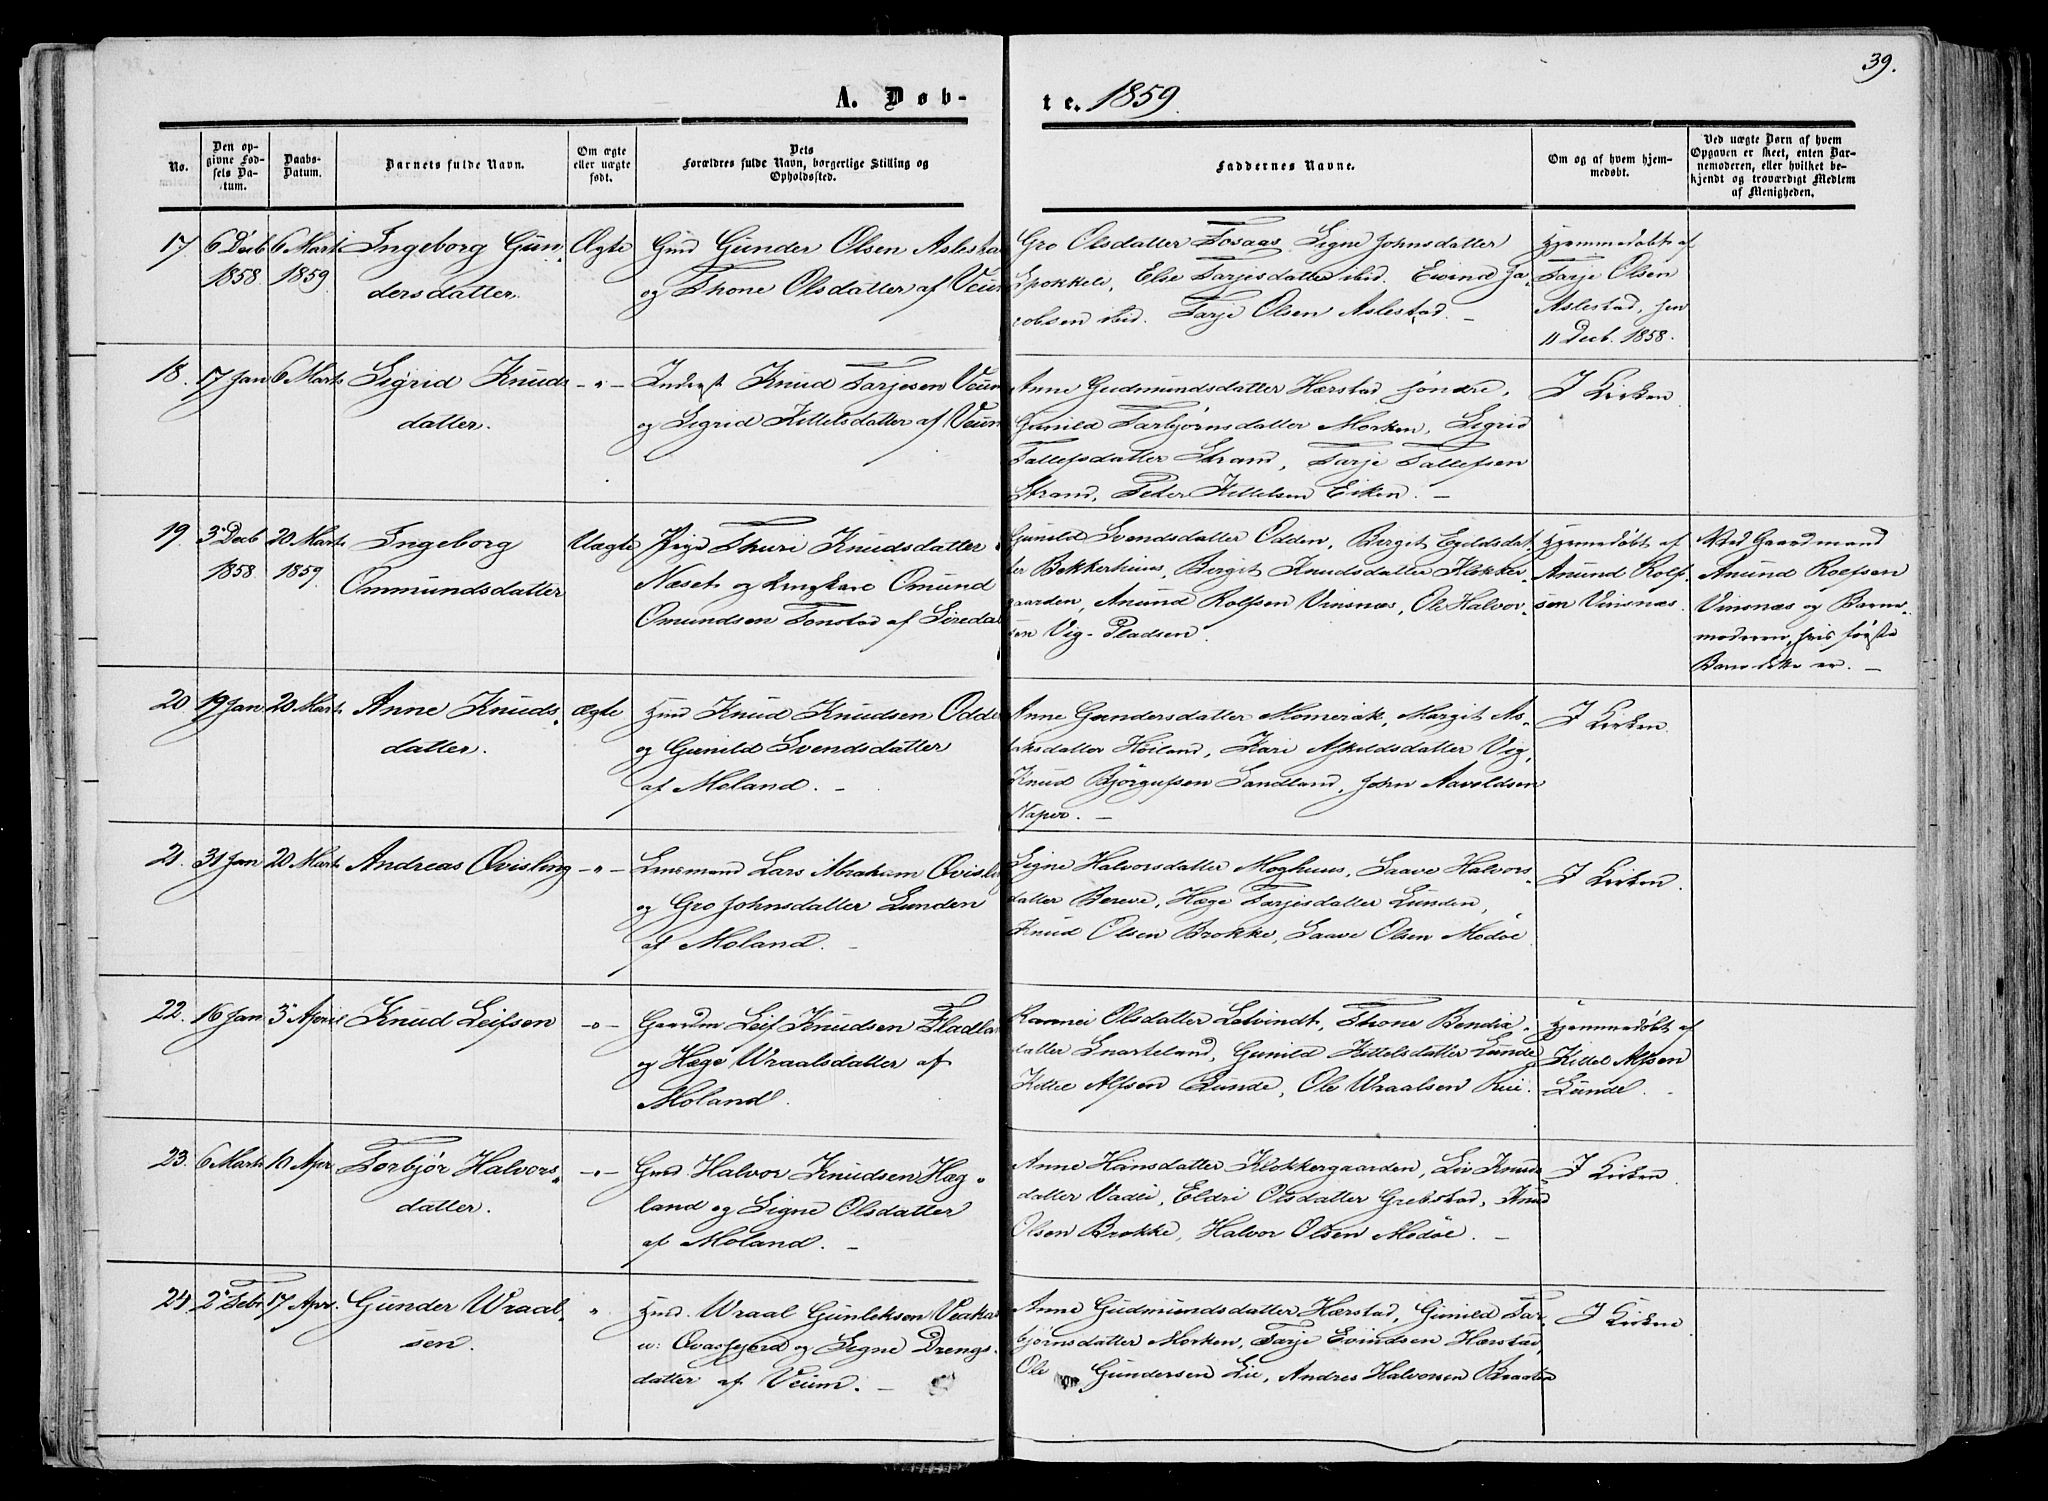 39.
A. Døb-
te. 1859.
No.
Den op-
givne Fød-
sels Da-
tum.
Daabs-
Datum.
Barnets fulde Navn.
Om ægte
eller uægte
født.
Dets
Forældres fulde Navn, borgerlige Stilling og
Opholdssted.
Faddernes Navne.
Om og af hvem hjem-
medøbt.
Ved uægte Børn af hvem
Opgaven er skeet, enten Bar-
nemoderen, eller hvilket be-
kjendt og troværdigt Medlem
af Menigheden.
17. 6 Decb 1858. 6 Marts 1859.
Ingeborg Gun-
dersdatter.
Ægte
Gmd Gunder Olsen Aslestad
og Thone Olsdatter af Veum
Gro Olsdatter Tosaas, Signe Johnsdatter
Spokkeli, Else Tarjesdatter ibid. Eivind Ja-
cobsen ibid. Tarje Olsen Aslestad. -
Hjemmedøbt af
Tarje Olsen
Aslestad, den
11 Decb. 1858.
18. 17 Jan 6 Marts
Sigrid Knuds
datter.
-"-
Inderst Knud Tarjesen Veum
og Sigrid Kittelsdatter af Veum
Anne Gudmundsdatter Hærstad søndre,
Gunild Tarbjørnsdatter Morken, Sigrid
Tallefsdatter Strand, Tarje Tallefsen
Strand, Peder Kittelsen Eiken. -
I Kirken
19. 3 Decb 1858. 20 Marts 1859.
Ingeborg
Ommundsdatter
Uægte
Pige Thuri Knudsdatter
Næset og Ungkarl Omund
Omundsen Tonstad af Siredal
Gunild Svendsdatter Odden, Birgit Egildsdat-
ter Bekkerhuus, Birgit Knudsdatter Klokker-
gaarden, Anund Rolfsen Vinsnæs, Ole Halvor-
sen Vig-Pladsen.
Hjemmedøbt af
Anund Rolf-
sen Vinsnæs.
Med Gaardmand
Anund Roefsen
Vinsnæs og Barne-
moderen, hvis første
Barn dette er. -
20. 19 Jan 20 Marts
Anne Knuds-
datter.
Ægte
Hmd Knud Knudsen Odden
og Gunild Svendsdatter
af Moland. -
Anne Gundersdatter Momerak, Margit As-
laksdatter Høiland, Kari Askildsdatter Vig,
Knud Bjørgufsen Sandland, John Aavoldsen
Naper. -
I Kirken.
21. 31 Jan 20 Marts
Andreas Qvisling
-"-
Lensmand Lars Abraham Qvisling
og Gro Johnsdatter Lunden
af Moland. -
Signe Halvorsdatter Moghuus, Saave Halvors-
datter Bereve, Hæge Tarjesdatter Lunden,
Knud Olsen Brokke, Saave Olsen Modøe
I Kirken.
22. 16 Jan 3 April
Knud Leifsen
-"-
Gaardm Leif Knudsen Fladla
og Hæge Wraalsdatter af
Moland.
Rannei Olsdatter Lotvindt, Thone Bendix-
datter Snarteland, Gunild Kittelsdatter Lunde
Kittil Alfsen Lunde, Ole Wraalsen Rui.
Hjemmedøbt af
Kittel Alfsen
Lunde. -
23. 6 Marts 10 Apr
Torbjør Halvors-
datter.
-"-
Gmd Halvor Knudsen Hæg-
land og Signe Olsdatter
af Moland. -
Anne Hansdatter Klokkergaarden, Liv Knuds
datter Vadei, Eldri Olsdatter Grebstad, Knud
Olsen Brokke, Halvor Olsen Modøe. -
I Kirken.
24. 2 Febr. 17 Apr.
Gunder Wraal-
sen.
"
Hmd. Wraal Gunleksen Veakas
u: Qvasfjerd og Signe Drengs-
datter af Veum. -
Anne Gudmundsdatter Hærstad, Gunild Tar-
bjørnsdatter Morken, Tarje Evindsen Hærstad,
Ole Gundersen Lie, Andres Halvorsen Braaten
I Kirken